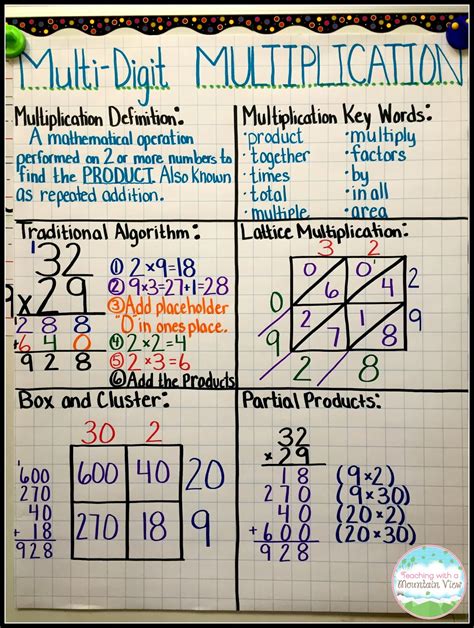 Multi-Digit MULTIPLICATION
Multiplication Definition:
A mathematical operation
performed on 2 or more numbers to
find the PRODUCT. Also Known
as repeated addition.
Multiplication Key Words:
·product ·multiply
·together ·factors
·times ·by
·total ·in all
·multiple ·area
Traditional Algorithm:
1
32
×29
1
288
+640
928
① 2×9=18
② 9×3=27+1=28
③ Add placeholder
"0" in ones place.
④ 2×2=4
⑤ 2×3=6
⑥ Add the Products
Lattice Multiplication:
3 2
0 6 0 4 2
0
2 7 1 8 9
9
2 8
Box and Cluster:
30 2
600 40 20
270 18 9
1
600
270
40
+ 18
928
Partial Products:
32
× 29
18 (9×2)
270 (9×30)
40 (20×2)
+600 (20×30)
928
Teaching with a
Mountain View